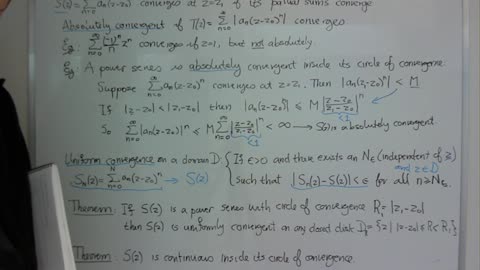 S(z) = Σ_{n=0}^{∞} a_n(z-z_0)^n converges at z=z_1 if its partial sums converge
Absolutely convergent if T(z) = Σ_{n=0}^{∞} |a_n(z-z_0)^n| converges.
Eg: Σ_{n=0}^{∞} (-1)^n/n z^n converges if z=1, but not absolutely.
Eg: A power series is absolutely convergent inside its circle of convergence:
Suppose Σ_{n=0}^{∞} a_n(z-z_0)^n converges at z=z_1. Then |a_n(z_1-z_0)^n| < M
If |z-z_0| < |z_1-z_0| then |a_n(z-z_0)^n| ≤ M |z-z_0/z_1-z_0|^n
<1
So Σ_{n=0}^{∞} |a_n(z-z_0)|^n ≤ M Σ_{n=0}^{∞} |z-z_0/z_1-z_0|^n < ∞ → S(z) is absolutely convergent.
<1
Uniform convergence on a domain D: { If ε>0 and there exists an N_ε (independent of z)
and z∈D
S_N(z) = Σ_{n=0}^{N} a_n(z-z_0)^n → S(z) such that |S_n(z)-S(z)| < ε for all n ≥ N_ε.
Theorem: If S(z) is a power series with circle of convergence R_1 = |z_1-z_0|
then S(z) is uniformly convergent on any closed disk D_R = {z | |z-z_0| ≤ R < R_1}
Theorem: S(z) is continuous inside its circle of convergence.